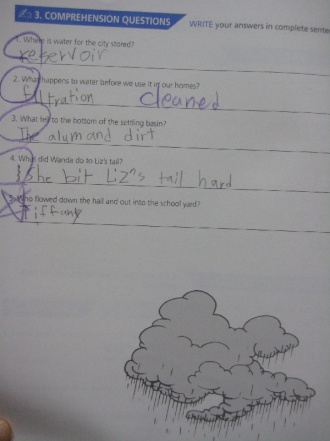 3. COMPREHENSION QUESTIONS WRITE your answers in complete sente
1. Where is water for the city stored?
reservoir
2. What happens to water before we use it in our homes?
filtration cleaned
3. What fell to the bottom of the settling basin?
The alum and dirt
4. What did Wanda do to Liz's tail?
She bit Liz's tail hard
5. Who flowed down the hall and out into the school yard?
Tiffany